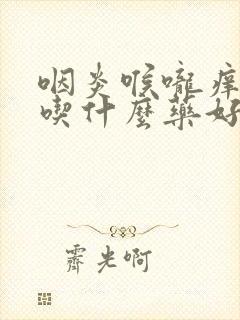 咽炎喉嚨痒
喫什麼藥好
霽光啊